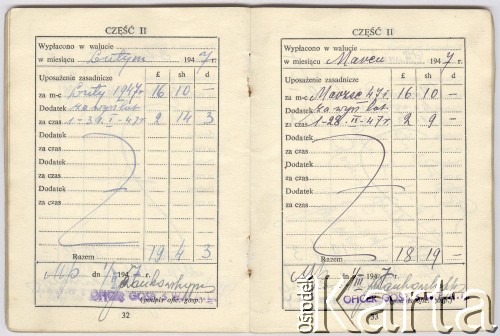 CZĘŚĆ II
Wypłacono w walucie
w miesiącu Lutym 1947 r.
Uposażenie zasadnicze £ sh d
za m-c Luty 1947r 16 10 —
Dodatek za wysł. lat
za czas 1-31.I-47r 2 14 3
Dodatek
za czas
Dodatek
za czas
Dodatek
za czas
Razem 19 4 3
M.p. dn 1947 r.
(podpis ofic. gosp.)
32
CZĘŚĆ II
Wypłacono w walucie
w miesiącu Marcu 1947 r.
Uposażenie zasadnicze £ sh d
za m-c Marzec 47r. 16 10 —
Dodatek za wysł. lat
za czas 1-28.II-47r 2 9 —
Dodatek
za czas
Dodatek
za czas
Dodatek
za czas
Razem 18 19 —
1947 r.
33
Ośrodek
© Fot